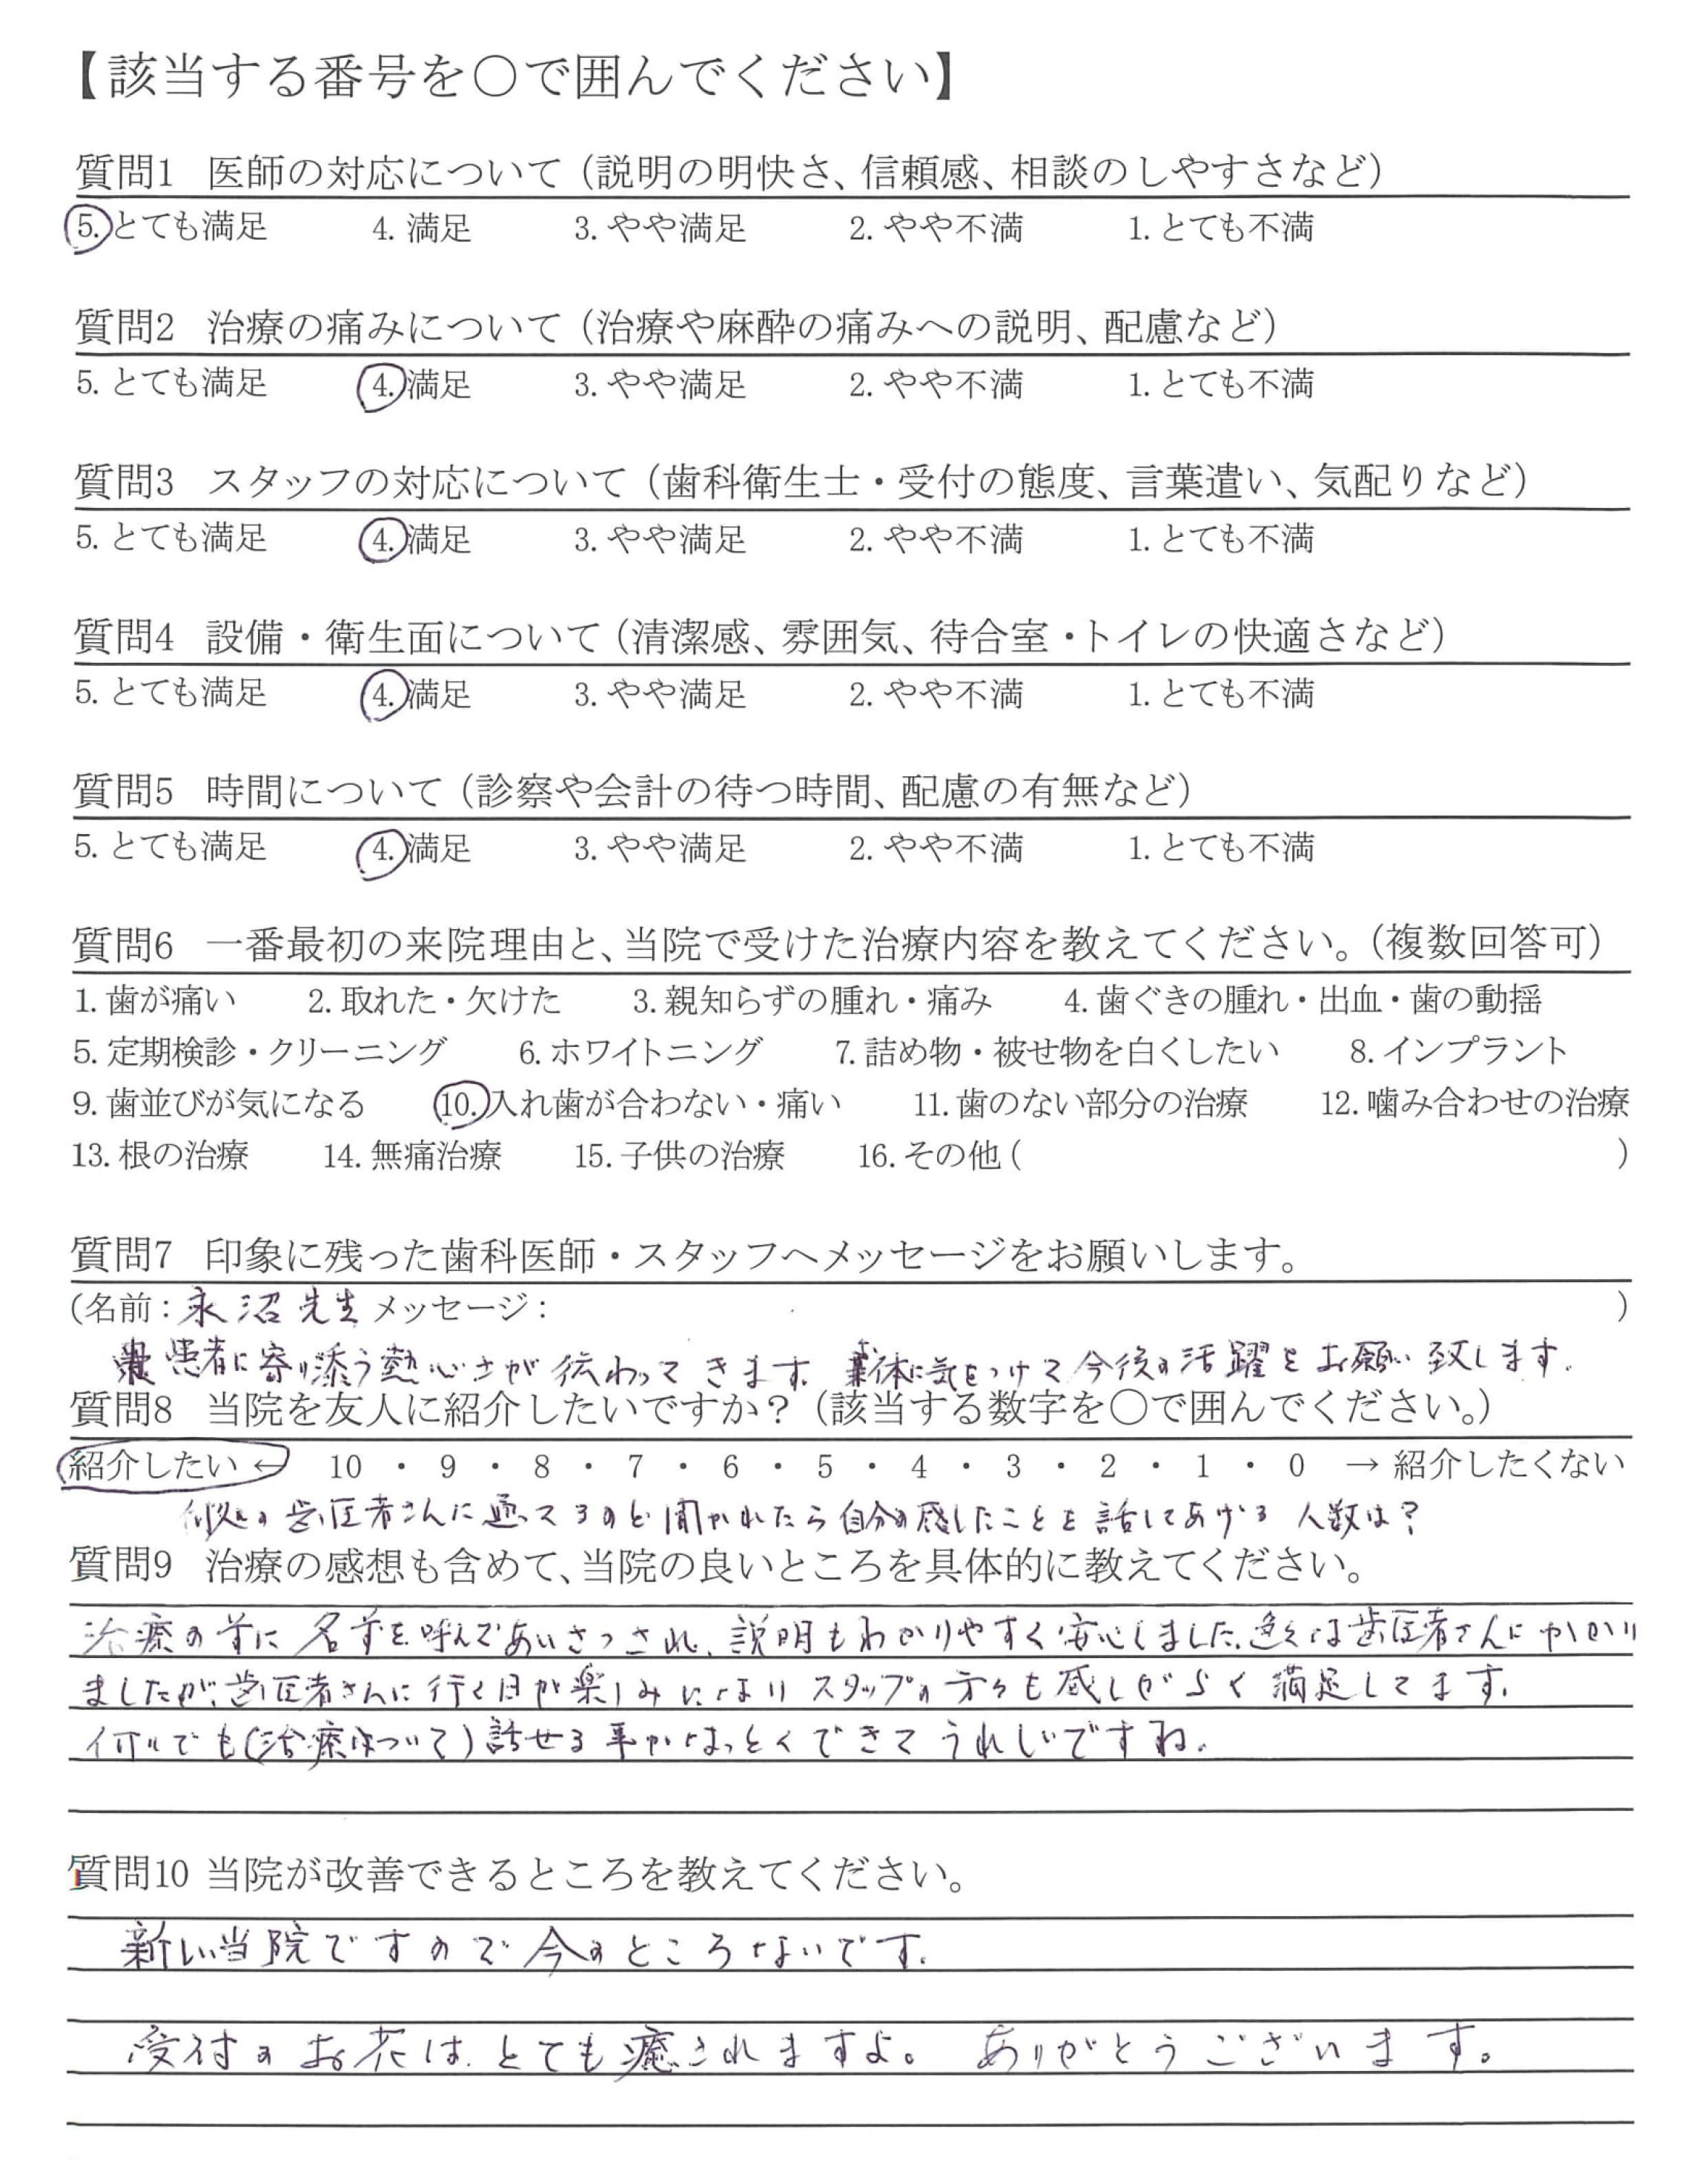 【該当する番号を○で囲んでください】
質問1 医師の対応について（説明の明快さ、信頼感、相談のしやすさなど）
5. とても満足 4. 満足 3. やや満足 2. やや不満 1. とても不満
質問2 治療の痛みについて（治療や麻酔の痛みへの説明、配慮など）
5. とても満足 4. 満足 3. やや満足 2. やや不満 1. とても不満
質問3 スタッフの対応について（歯科衛生士・受付の態度、言葉遣い、気配りなど）
5. とても満足 4. 満足 3. やや満足 2. やや不満 1. とても不満
質問4 設備・衛生面について（清潔感、雰囲気、待合室・トイレの快適さなど）
5. とても満足 4. 満足 3. やや満足 2. やや不満 1. とても不満
質問5 時間について（診察や会計の待つ時間、配慮の有無など）
5. とても満足 4. 満足 3. やや満足 2. やや不満 1. とても不満
質問6 一番最初の来院理由と、当院で受けた治療内容を教えてください。（複数回答可）
1. 歯が痛い 2. 取れた・欠けた 3. 親知らずの腫れ・痛み 4. 歯ぐきの腫れ・出血・歯の動揺
5. 定期検診・クリーニング 6. ホワイトニング 7. 詰め物・被せ物を白くしたい 8. インプラント
9. 歯並びが気になる 10. 入れ歯が合わない・痛い 11. 歯のない部分の治療 12. 噛み合わせの治療
13. 根の治療 14. 無痛治療 15. 子供の治療 16. その他（ ）
質問7 印象に残った歯科医師・スタッフへメッセージをお願いします。
（名前：永沼先生 メッセージ： ）
患者に寄り添う熱心さが伝わってきます。お体に気をつけて今後の活躍をお願い致します。
質問8 当院を友人に紹介したいですか？（該当する数字を○で囲んでください。）
紹介したい ← 10 ・ 9 ・ 8 ・ 7 ・ 6 ・ 5 ・ 4 ・ 3 ・ 2 ・ 1 ・ 0 → 紹介したくない
何処の歯医者さんに通ってるのと聞かれたら自分の感じたことを話してあげる 人数は？
質問9 治療の感想も含めて、当院の良いところを具体的に教えてください。
治療の前に名前を呼んであいさつされ、説明もわかりやすく安心しました。色々な歯医者さんにかかり
ましたが、歯医者さんに行く日が楽しみになりスタッフの方々も感じがよく満足してます。
何でも(治療について)話せる事がなっとくできてうれしいですね。
質問10 当院が改善できるところを教えてください。
新しい当院ですので今のところないです。
受付のお花はとても癒されますよ。 ありがとうございます。